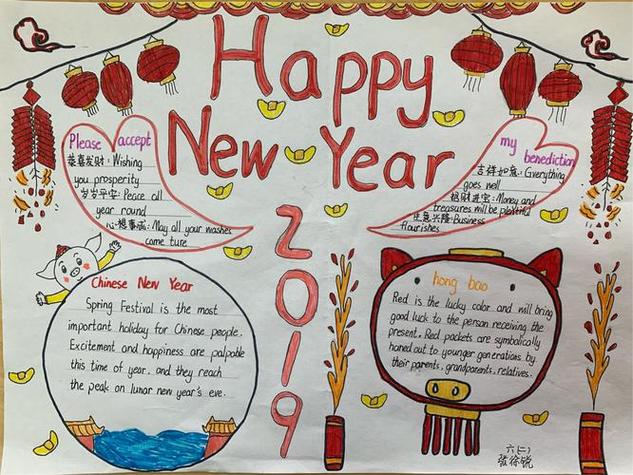 Happy
New Year
2019
Please accept
恭喜发财: Wishing
you prosperity
岁岁平安: Peace all
year round
心想事成: May all your washes
come ture
my benediction
吉祥如意: Gverything
goes well
招财进宝: Money and
treasures will be plentiful
生意兴隆: Business
flourishes
Chinese New Year
Spring Festival is the most
important holiday for Chinese people.
Excitement and happiness are palpable
this time of year, and they reach
the peak on lunar new year's eve.
hong bao
Red is the lucky color and will bring
good luck to the person receiving the
present. Red packets are symbolically
haned out to younger generations by
their parents, grandparents, relatives.
六(二)
张徐锐